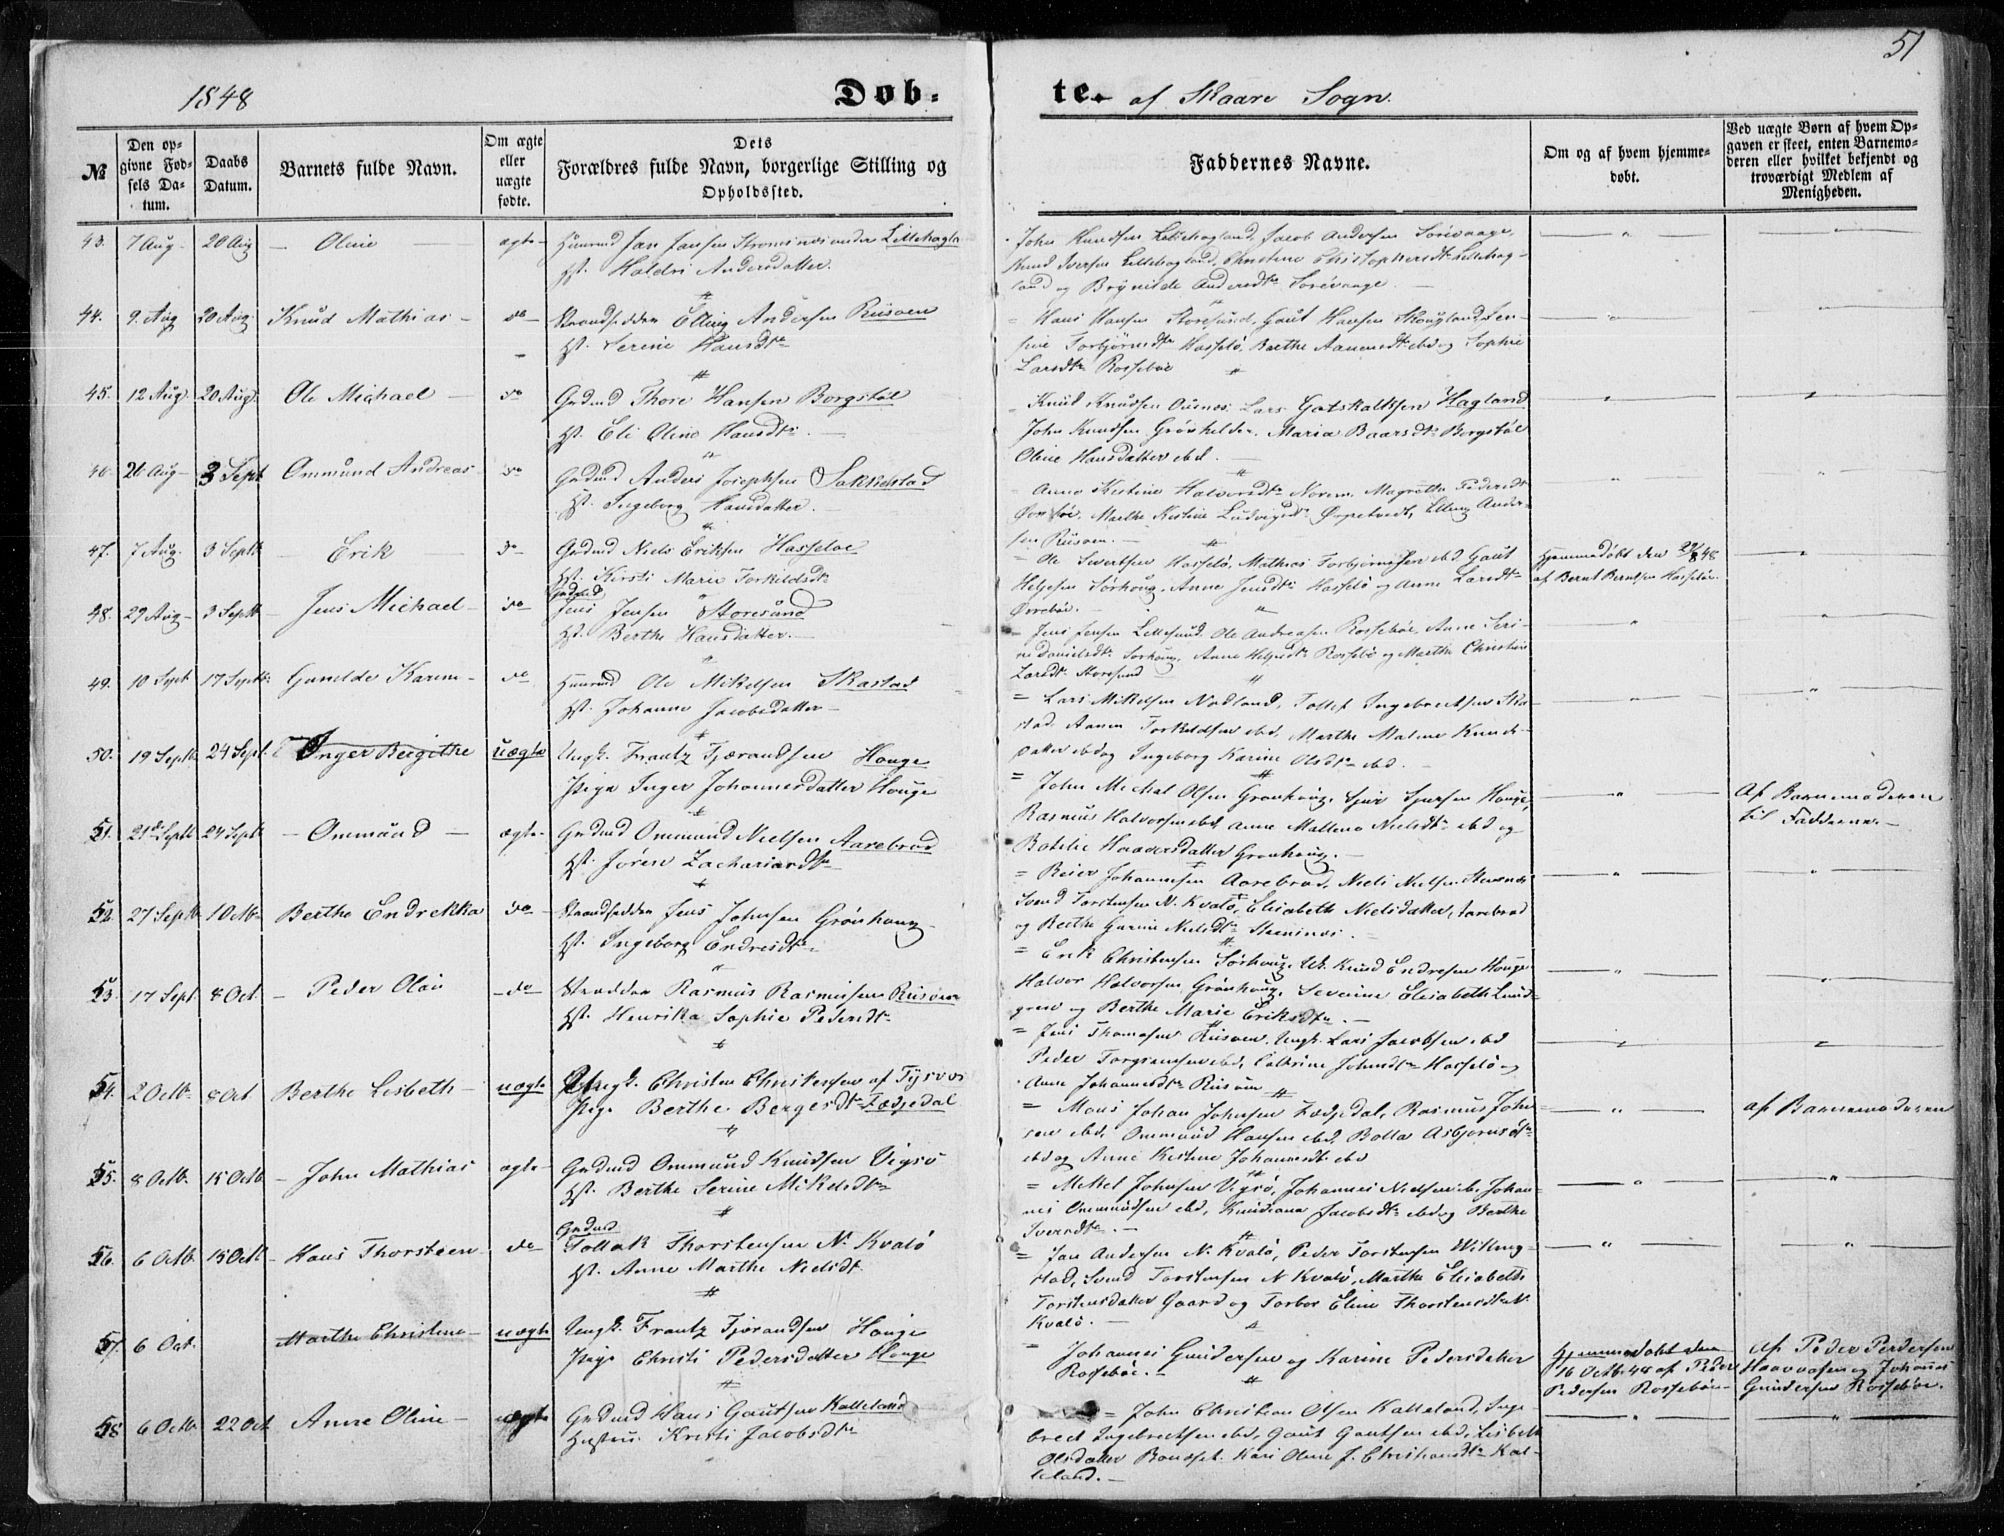 51
1848
Døb-
te. af Skaare Sogn.
№
Den op-
givne Fød-
sels Da-
tum.
Daabs
Datum.
Barnets fulde Navn.
Om ægte
eller
uægte
fødte.
Dets
Forældres fulde Navn, borgerlige Stilling og
Opholdssted.
Faddernes Navne.
Om og af hvem hjemme-
døbt.
Ved uægte Børn af hvem Op-
gaven er skeet, enten Barnemo-
deren eller hvilket bekjendt og
troværdigt Medlem af
Menigheden.
43. 7 Aug. 20 Aug. Oline ægte Huusmd Jan Jansen Stromsnæs under Lillehagla
Hst. Holdri Andersdatter.
John Knudsen Lillehagland, Jacob Andersen Sørevaage,
Knud Iversen Lillehagland, Christine Christophersdtr Lillehag-
land og Brynilde Andersdtr Sørevaage.
44. 9. Aug 20 Aug. Knud Mathias do Strandsidder Elling Andersen Risøen
Hst. Serine Hansdtr
Hans Hansen Storesund, Gaut Hansen Skougland, Se-
rine Torbjørnsdtr Hasselø, Berthe Aanensdtr ibd og Sophie
Larsdtr Rossebøe
45. 12 Aug. 20 Aug. Ole Michael do Grdmd Thore Hansen Borgstøl
Hst. Eli Oline Hansdtr
Knud Knudsen Ousnes, Lars Gotskalksen Hagland
John Knudsen Grønhelder, Maria Baarsdtr Borgstøl
Oline Hansdatter ibd.
46. 26 Aug 3 Sept Ommund Andreas do Grdmd Anders Josephsen Sakkestad
Hst. Ingeborg Hansdatter.
Anne Kistine Halvorsdtr Norem, Magrethe Pedersdtr
Marthe Kistine Ludvigsdtr Elling Ander-
sen Risøen.
47. 7 Aug. 3 Septb Erik do Grdmd Niels Eriksen Hasseløe
Hst. Kirsti Marie Torkildsdtr
Ole Sivertsen Hasselø, Mathias Torbjørnsen ibd, Gaut
Helgesen Sørhoug, Anne Hasselø og Anne Larsdtr
Øvrebøe.
Hjemmedøbt den 27/8 48
af Bernt Berntsen Hasseløe
48. 29 Aug 3 Septb Jens Michael do Grdmd
Jens Jensen Storesund
Hst. Berthe Hansdatter.
Jens Jensen Lillesund, Ole Andreasen Rossebøe, Anne Seri-
ne Danielsdtr Sørhoug, Anne Helgesdtr Rossebø og Marthe Christine
Larsdtr Storesund
49. 10 Sept 17 Septb Gunelde Karine do Huusmd Ole Mikelsen Skastad
Hst. Johanne Jacobsdatter
Lars Mikelsen Nodland, Tollef Ingebretsen Ska-
stad, Aanen Torkildsen ibd, Marthe Malene Knuds-
datter ibd og Ingeborg Karine Olsdtr ibd.
50. 19 Septb 24 Sept. Inger Birgithe uægte Ungk. Frantz Fjerandsen Houge
Pige Inger Johannesdatter Houge
John Michal Olsen Grønhoug, Sjur Sjursen Houge,
Rasmus Halvorsen ibd, Anne Mallene Nielsdtr ibd og
Botilie Haaversdatter Grønhoug.
Af Barnemoderen
til Fadderne.
51. 21de Septb 24 Septb Ommund ægte Grdmd Ommund Nielsen Aarebrod
Hst. Jøren Zachariasdtr
Reier Johannesen Aarebrod, Niels Nielsen Steensnes
Svend Torstensen N. Kvalø, Elisabeth Nielsdatter, Aarebrod
og Berthe Gurine Nielsdtr Steensnes.
52. 27 Septb 1 Octb Berthe Endrekka do Strandsidder Jens Johnsen Grønhoug
Hst. Ingeborg Endresdtr
Erik Christensen Sørhoug, Uk. Knud Endresen Houge
Halvor Halvorsen Grønhoug, Severine Elisabeth Lund-
green og Berthe Marie Eriksdtr.
53. 17 Sept. 8 Oct. Peder Olai do Strsidder Rasmus Rasmusen Risøen
Hst. Henrikka Sophie Pedersdtr
Jens Thomasen Risøen, Ungk. Lars Jacobsen ibd
Peder Torgersen ibd, Cathrine Johnsdtr Hasselø og
Anne Johannesdtr Risøen
54. 2 Octb. 8 Oct Berthe Lisbeth uægte Ungk. Christen Christensen af Tysvær
Pige Berthe Bergesdtr Fædjedal
Mons Johan Johnsen Fædjedal, Rasmus John-
sen ibd, Ommund Hansen ibd, Bolla Asbjørnsdtr
ibd og Anne Kistine Johannesdtr ibd
af Barnemoderen
55. 8 Octb. 15 Octb John Mathias ægte Grdmd Ommund Knudsen Vigsø
Hst. Berthe Serine Mikelsdtr
Mikkel Johnsen Vigsø, Johannes Nielsen ib, Johan-
nes Ommundsen ibd, Knudiana Jacobsdtr ibd og Berthe
Iversdtr.
56. 6 Octb. 15 Octb Hans Thorsteen do Grdmd
Tollak Thorstensen N. Kvalø
Hst. Anne Marthe Nielsdtr
Jan Andersen N. Kvalø, Peder Torstensen Williung-
stad, Svend Torstensen N Kvalø, Marthe Elisabeth
Torstensdatter Gaard og Torbor Eline Thorstensdtr N.
Kvalø.
57. 6 Oct. Marthe Christine uægte Ungk. Frantz Fjerandsen Houge
Pige Christi Pedersdatter Houge
Johannes Gundersen og Karine Pedersdatter
Rossebøe.
Hjemmedøbt den
16 Octb. 48 af Peder
Pedersen Rossebøe
af Peder Pedersen
Haavaasen og Johannes
Gundersen Rossebøe.
58 6 Octb. 22 Oct Anne Oline ægte Grdmd Hans Gautsen Kalleland
Hustru Kristi Jacobsdtr
John Christian Olsen Kalleland, Inge-
bret Ingebretsen ibd, Gaut Gautsen ibd, Lisbeth
Olsdatter Kari Oline J. Christiansdtr Kal-
leland.